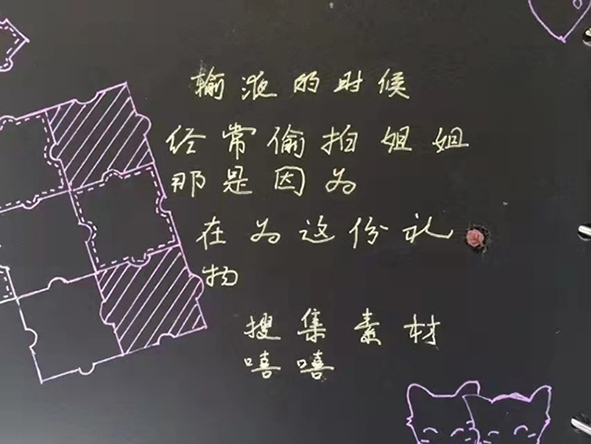 输液的时候
经常偷拍姐姐
那是因为
在为这份礼
物
搜集素材
嘻嘻